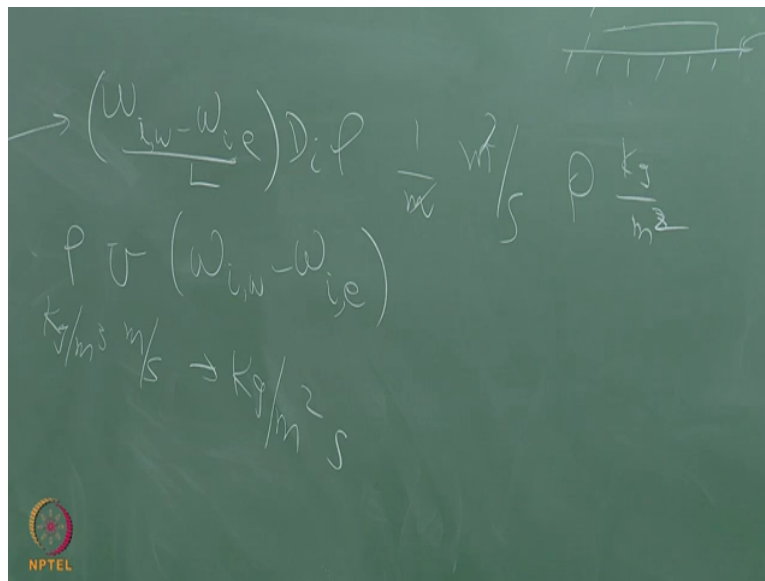 (ω_{i,w} - ω_{i,e} / L) D_i ρ   1/m   m²/s   ρ kg/m³
ρ v (ω_{i,w} - ω_{i,e})
kg/m³ m/s → kg/m² s
NPTEL